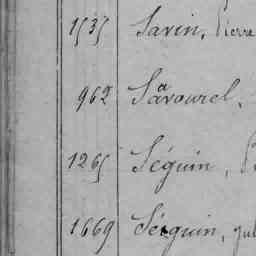 1535 Savin, Pierre
962 Savourel,
1265 Séguin,
1669 Séguin, Jul